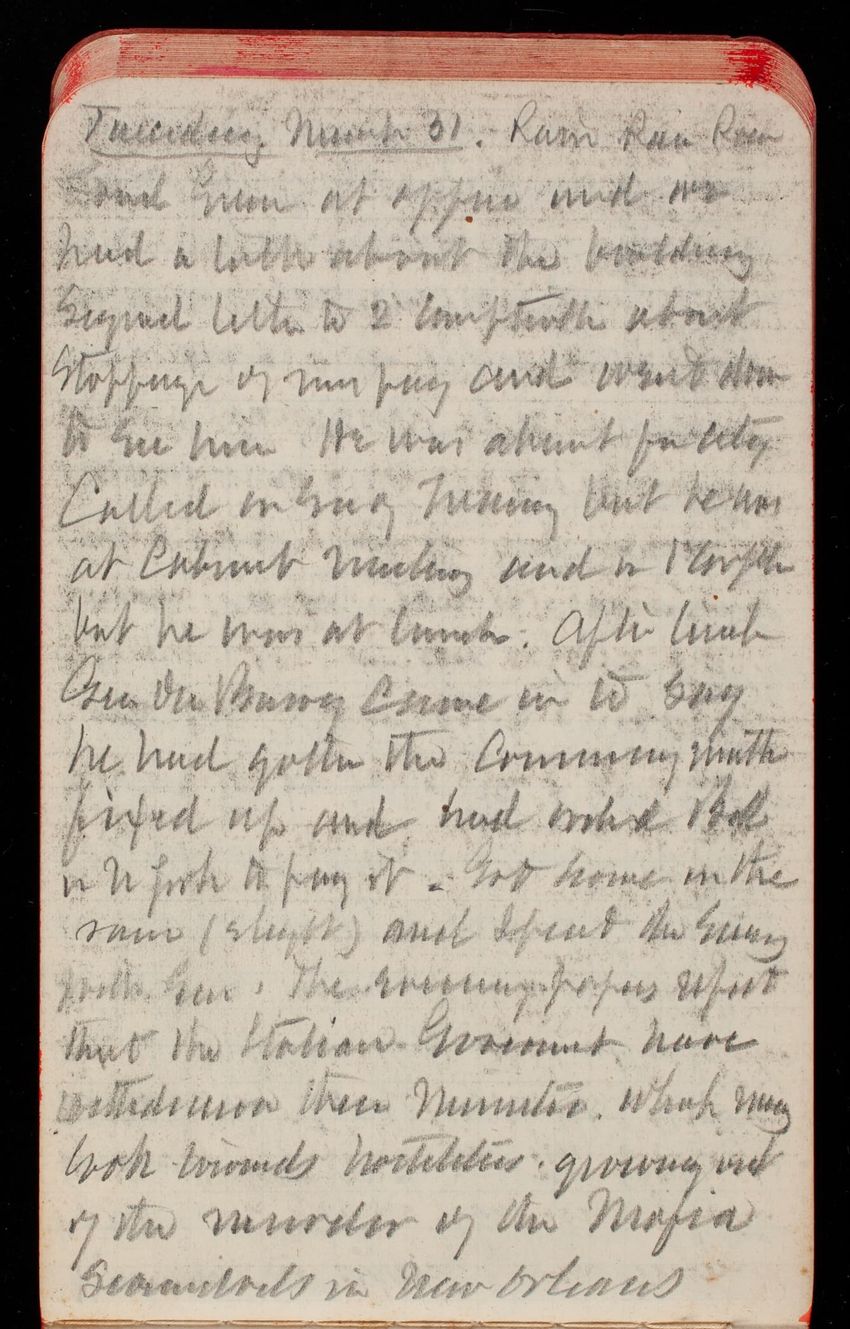 Tuesday, March 31. Rain Rain Rain
and Green at office and we
had a talk about the building
Signed letter to 2 Comptroller about
Stoppage of my pay and went down
to see him He was absent from city
Called on Secy Treasury but he was
at Cabinet Meeting and on
but he was at lunch. After lunch
Gen came in to say
he had gotten the matter
fixed up and had ordered
in N York to pay it. Got home in the
rain (slight) and spent the Evening
with Gen. The evening papers report
that the Italian Goverment have
withdrawn their Minister. which may
look towards hostilities. growing out
of the murder of the Mafia
Scoundrels in New Orleans